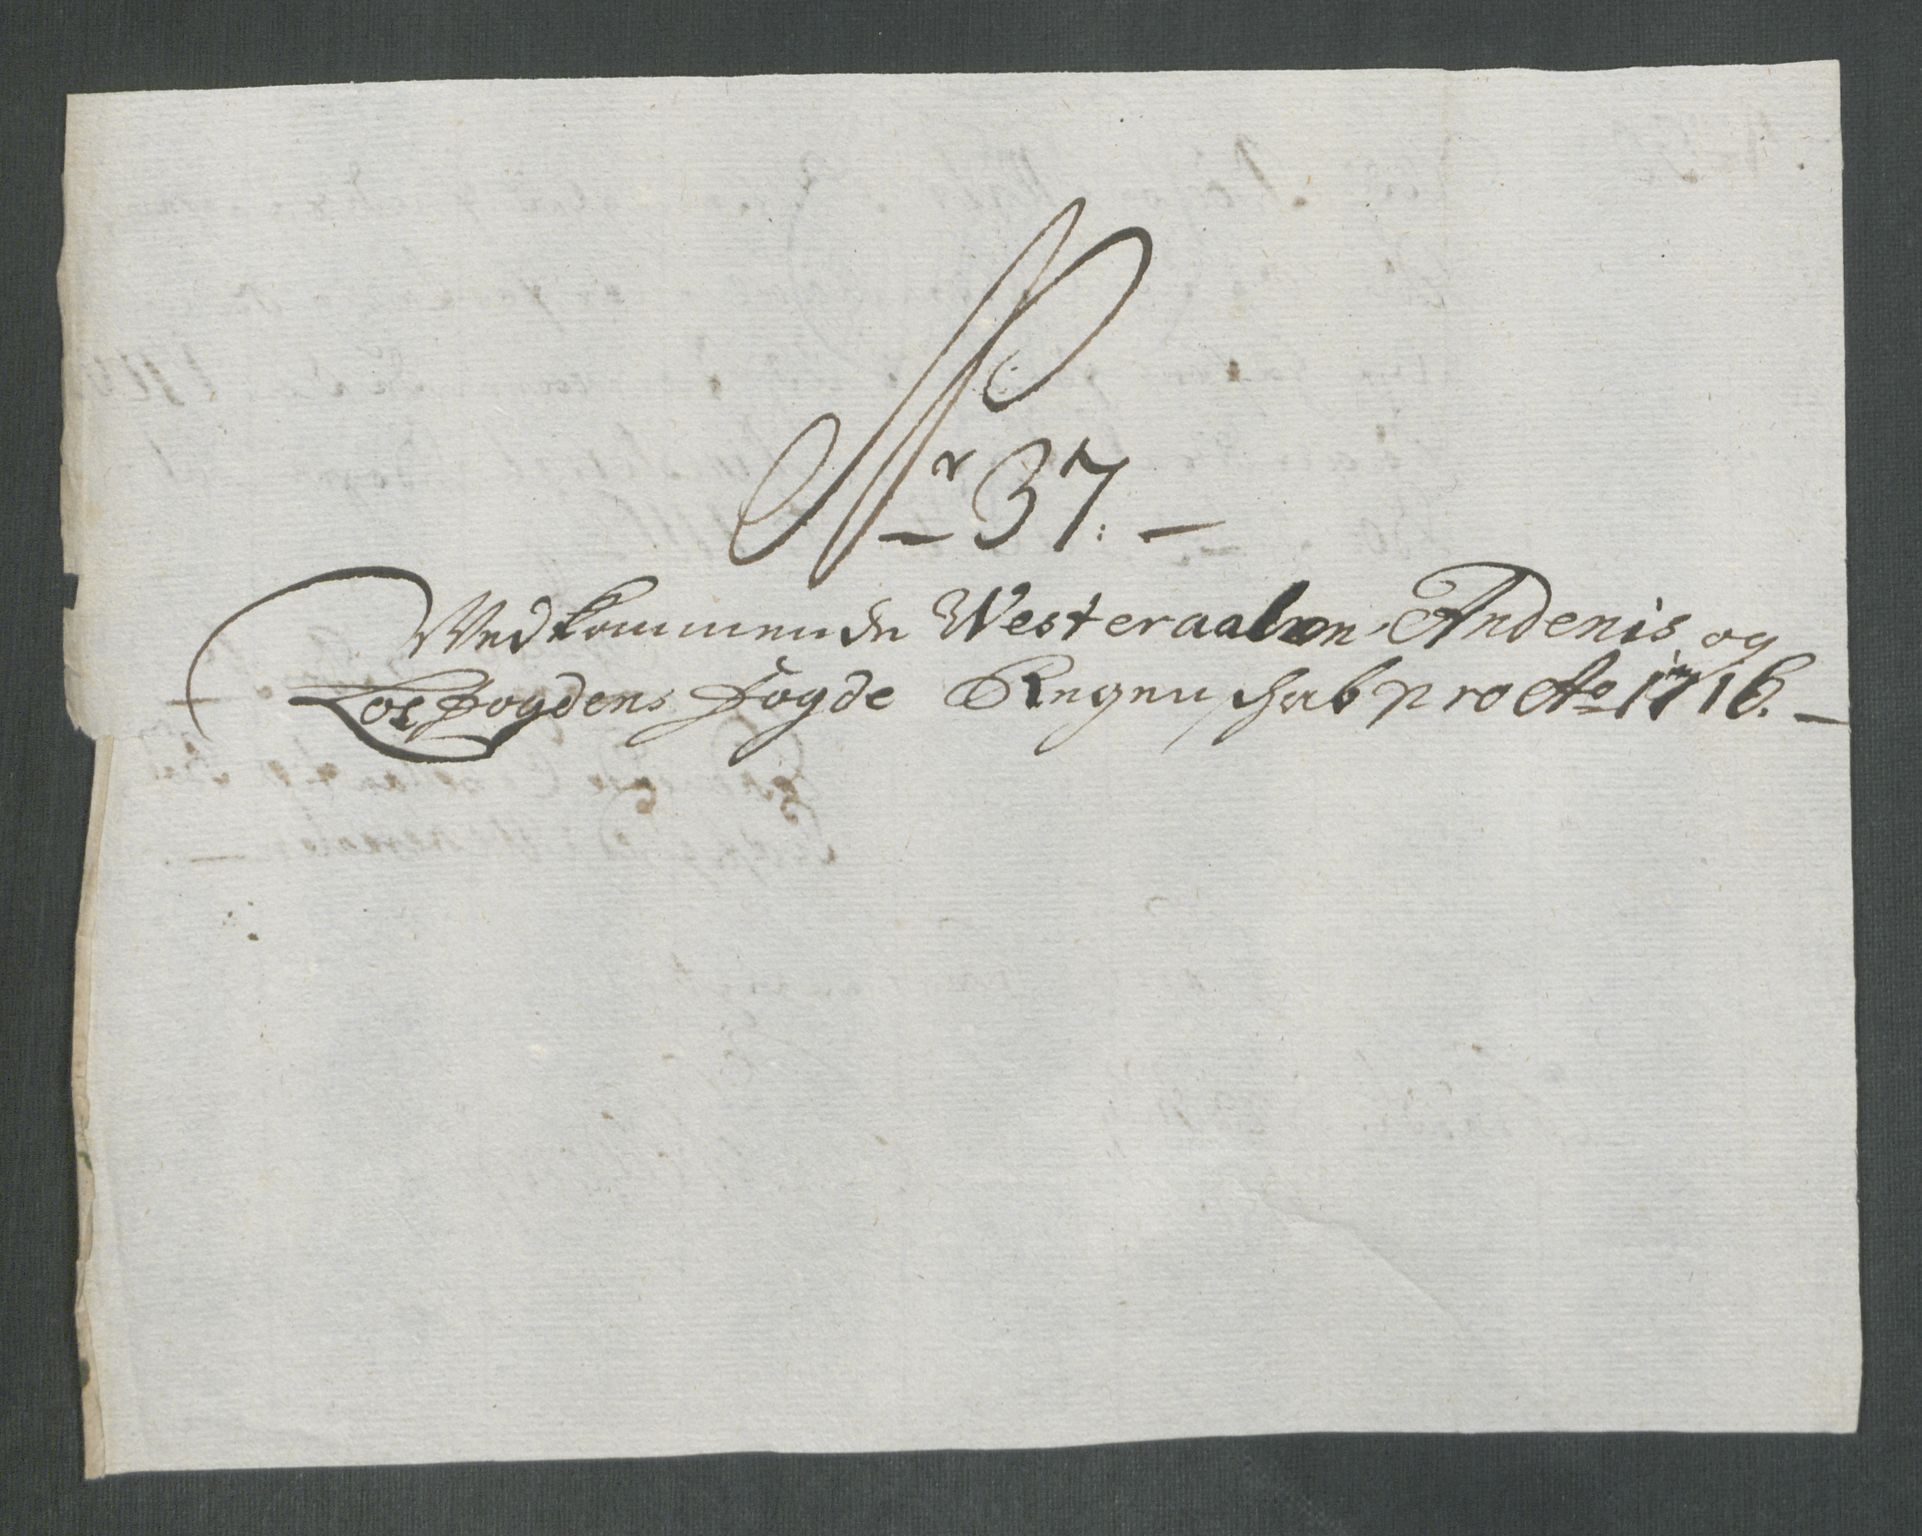 Nr 37.
Vedkommende Westeraalen Andenis og
Loffogdens Fogde Regnschab pro Ao 1716.